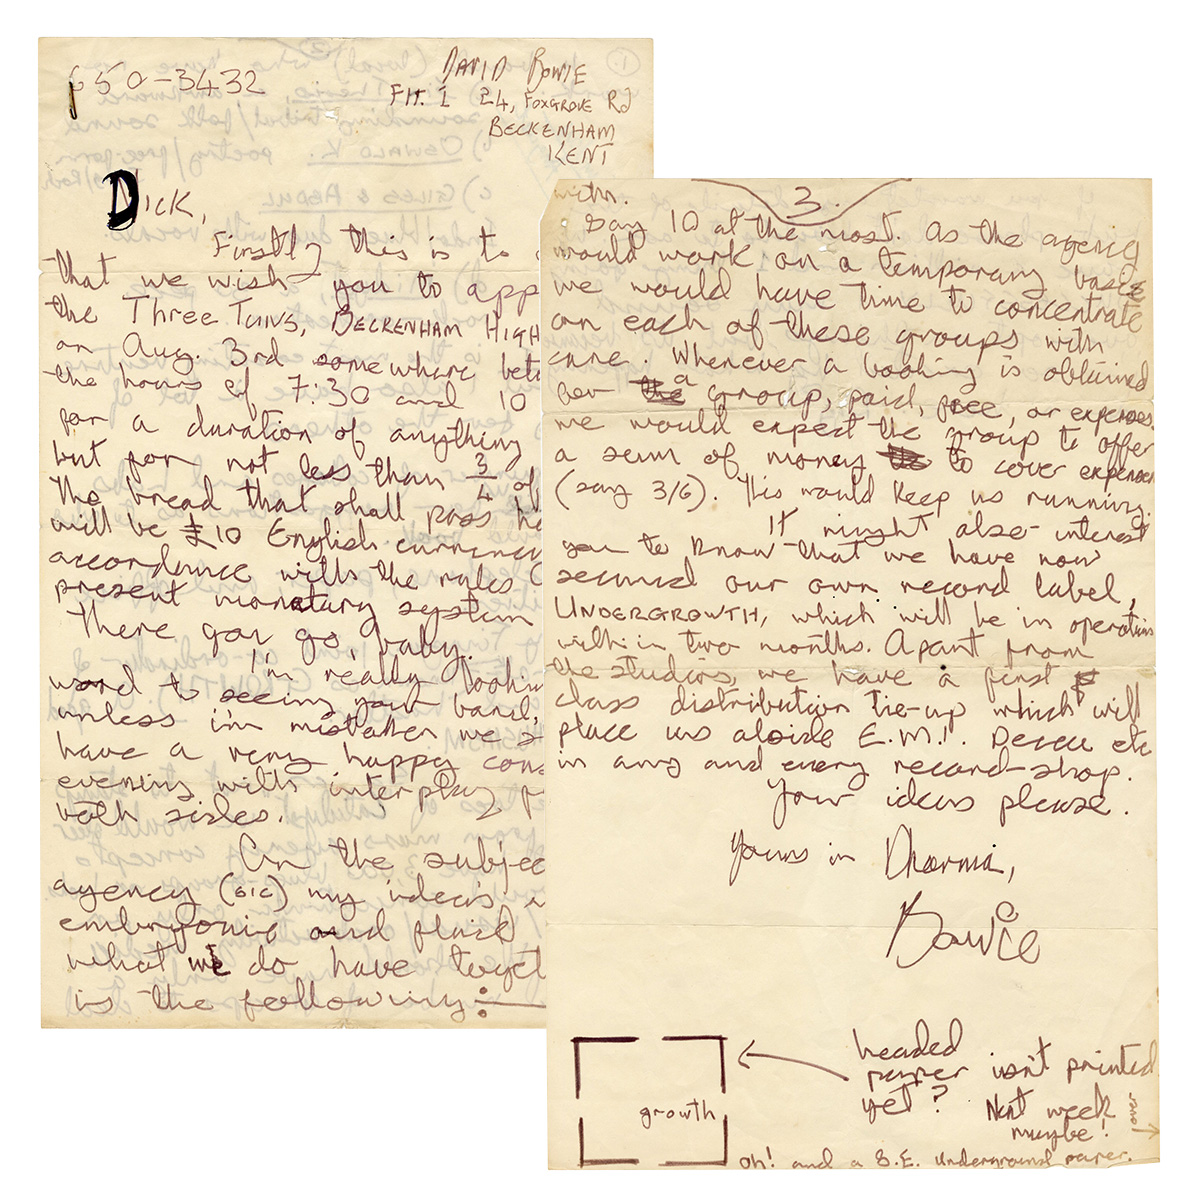 650-3432
DAVID BOWIE
Flt. 1 24, FOXGROVE RD
BECKENHAM
KENT
DICK,
Firstly this is to
that we wish you to app
the THREE TUNS, BECKENHAM HIGH
on Aug. 3rd somewhere betw
the hours of 7:30 and 10
for a duration of anything
but for not less than 3/4 of
The bread that shall pass ha
will be £10 English currency
accordance with the rules
present monetary system
There you go, baby.
I'm really lookin
ward to seeing your band,
unless i'm mistaken we s
have a very happy cons
evening with interplay f
both sides.
On the subjec
agency (sic) my ideas
embryonic and fluid
what we do have toget
is the following:—
3.
with.
Say 10 at the most. As the agency
would work on a temporary basis
we would have time to concentrate
on each of these groups with
care. Whenever a booking is obtained
for the a group, paid, free, or expenses.
we would expect the group to offer
a sum of money to cover expenses
(say 3/6). This would keep us running.
It might also interest
you to know that we have now
secured our own record label,
UNDERGROWTH, which will be in operation
within two months. Apart from
the studios, we have a first
class distribution tie-up which will
place us aloside E.M.I. Decca etc
in any and every record-shop.
Your ideas please.
Yours in Dharma,
Bowie
growth
headed
paper isn't printed
yet? Next week
maybe!
over
oh! and a S.E. Underground paper.